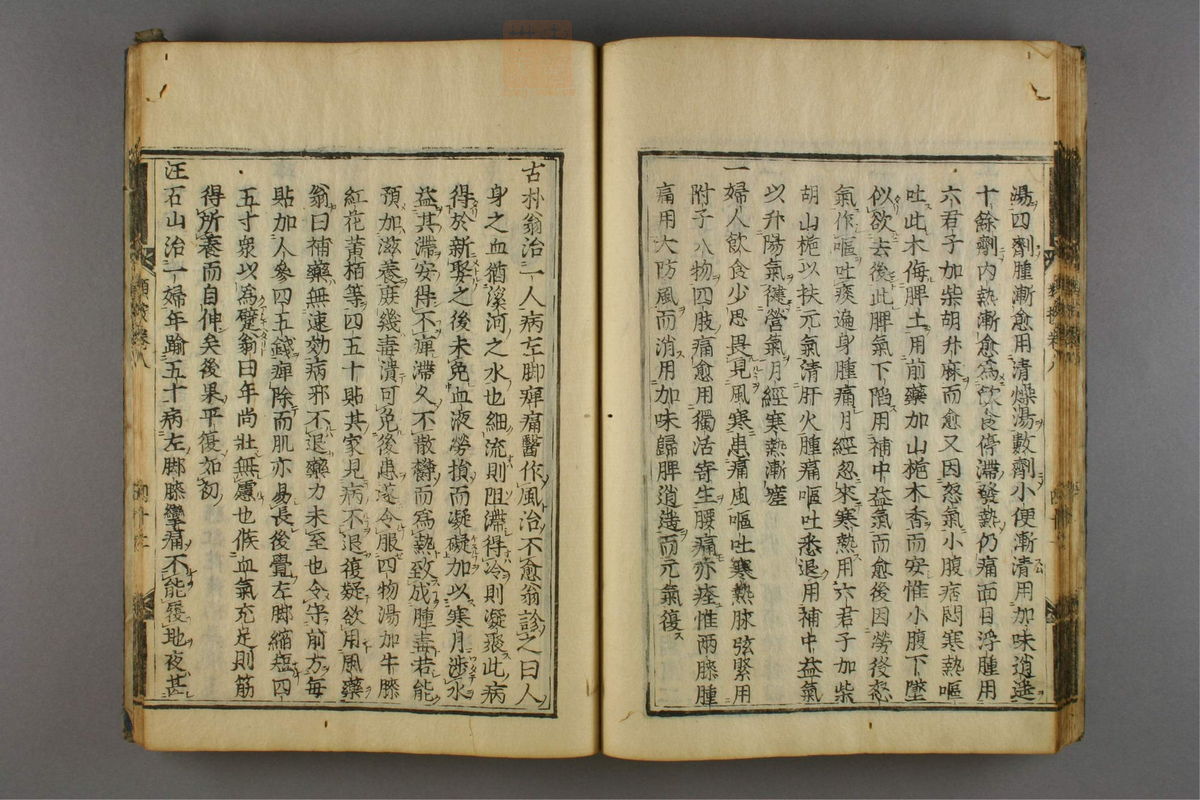 湯四劑腫漸愈用清燥湯數劑小便漸清用加味逍遙
十餘劑內熱漸愈為飲食停滯發熱仍痛面目浮腫用
六君子加柴胡升麻而愈又因怒氣小腹痞悶寒熱嘔
吐此木侮脾土用前藥加山梔木香而安惟小腹下墜
似欲去後此脾氣下陷用補中益氣而愈後因勞役怒
氣作嘔吐痰遍身腫痛月經忽來寒熱用六君子加柴
胡山梔以扶元氣清肝火腫痛嘔吐悉退用補中益氣
以升陽氣健營氣月經寒熱漸瘥
一婦人飲食少思畏見風寒患痛風嘔吐寒熱脉弦緊用
附子八物四肢痛愈用獨活寄生腰痛亦痊惟兩膝腫
痛用大防風而消用加味歸脾逍遙而元氣復
古朴翁治一人病左脚痺痛醫作風治不愈翁診之曰人
身之血猶溪河之水也細流則阻滯得冷則凝聚此病
得於新娶之後未免血液勞損而凝礙加以寒月涉水
益其滯安得不痺滯久不散鬱而為熱致成腫毒若能
預加滋養庶幾毒潰可免後患遂令服四物湯加牛膝
紅花黃栢等四五十貼其家見病不退復疑欲用風藥
翁曰補藥無速効病邪不退藥力未至也令守前方每
貼加人參四五錢痺除而肌亦易長後覺左脚縮短四
五寸衆以為躄翁曰年尚壯無慮也候血氣充足則筋
得所養而自伸矣後果平復如初
汪石山治一婦年踰五十病左脚膝攣痛不能履地夜甚
類按卷八